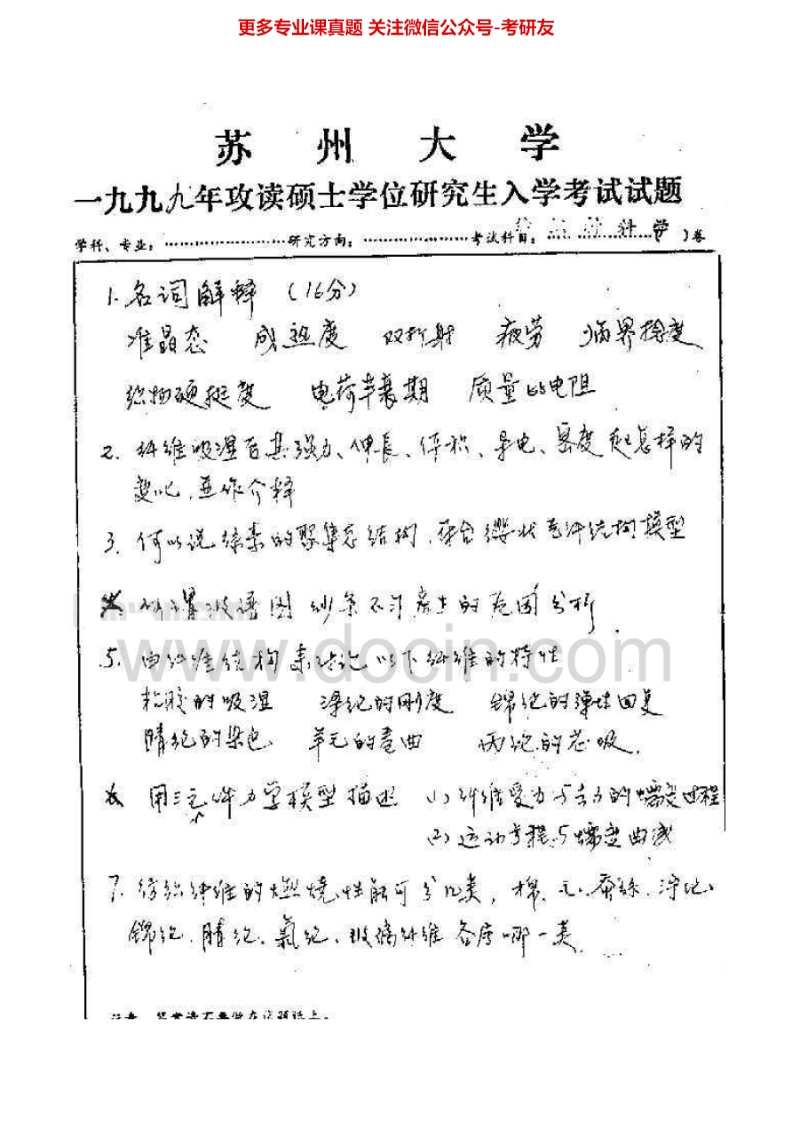 更多专业课真题 关注微信公众号-考研友
苏州大学
一九九九年攻读硕士学位研究生入学考试试题
学科、专业：……………………研究方向：…………………考试科目：……………学 )卷
1. 名词解释 (16分)
准晶态 成熟度 双折射 疲劳 临界捻度
织物硬挺度 电荷半衰期 质量比电阻
2. 纤维吸湿后其强力、伸长、体积、导电、密度起怎样的
变化，并作介释
3. 何以说 的聚集态结构，符合缨状 结构模型
波谱图 纱条不匀 上的 分析
5. 由纤维结构来讨论以下纤维的特性
粘胶的吸湿 涤纶的刚度 锦纶的弹性回复
腈纶的染色 羊毛的卷曲 丙纶的芯吸.
用三元件力学模型描述 (1) 纤维受力与去力的蠕变过程
(2) 运动方程与蠕变曲线
7. 纺织纤维的燃烧性能可分几类，棉、毛、蚕丝、涤纶、
锦纶、腈纶、氯纶、玻璃纤维各属哪一类
www.docin.com